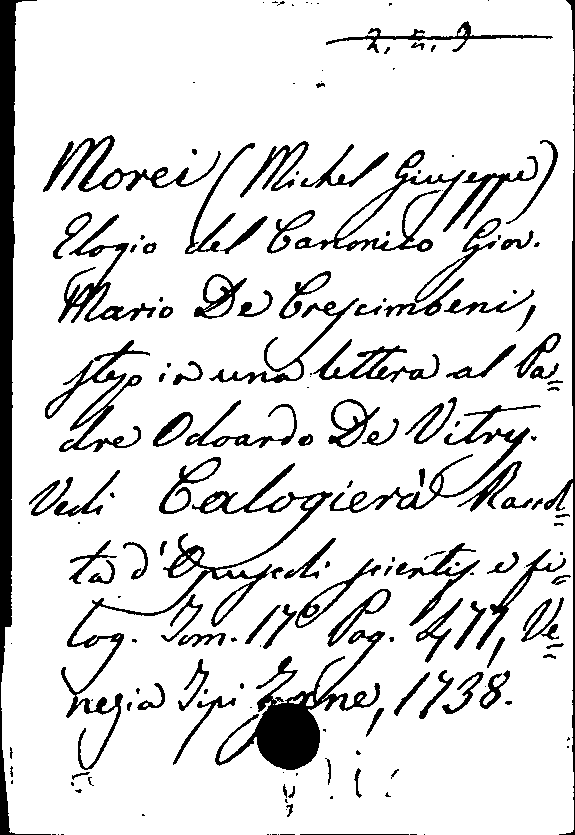 2. 5. 9
Morei (Michel Giuseppe)
Elogio del Canonico Giov.
Mario De Crescimbeni,
steso in una lettera al Pa=
dre Odoardo De Vitry.
Vedi Calogierà Raccol=
ta d'Opuscoli scientif. e fi=
log. Tom. 17° Pag. 477, Ve=
nezia Tipi Zane, 1738.